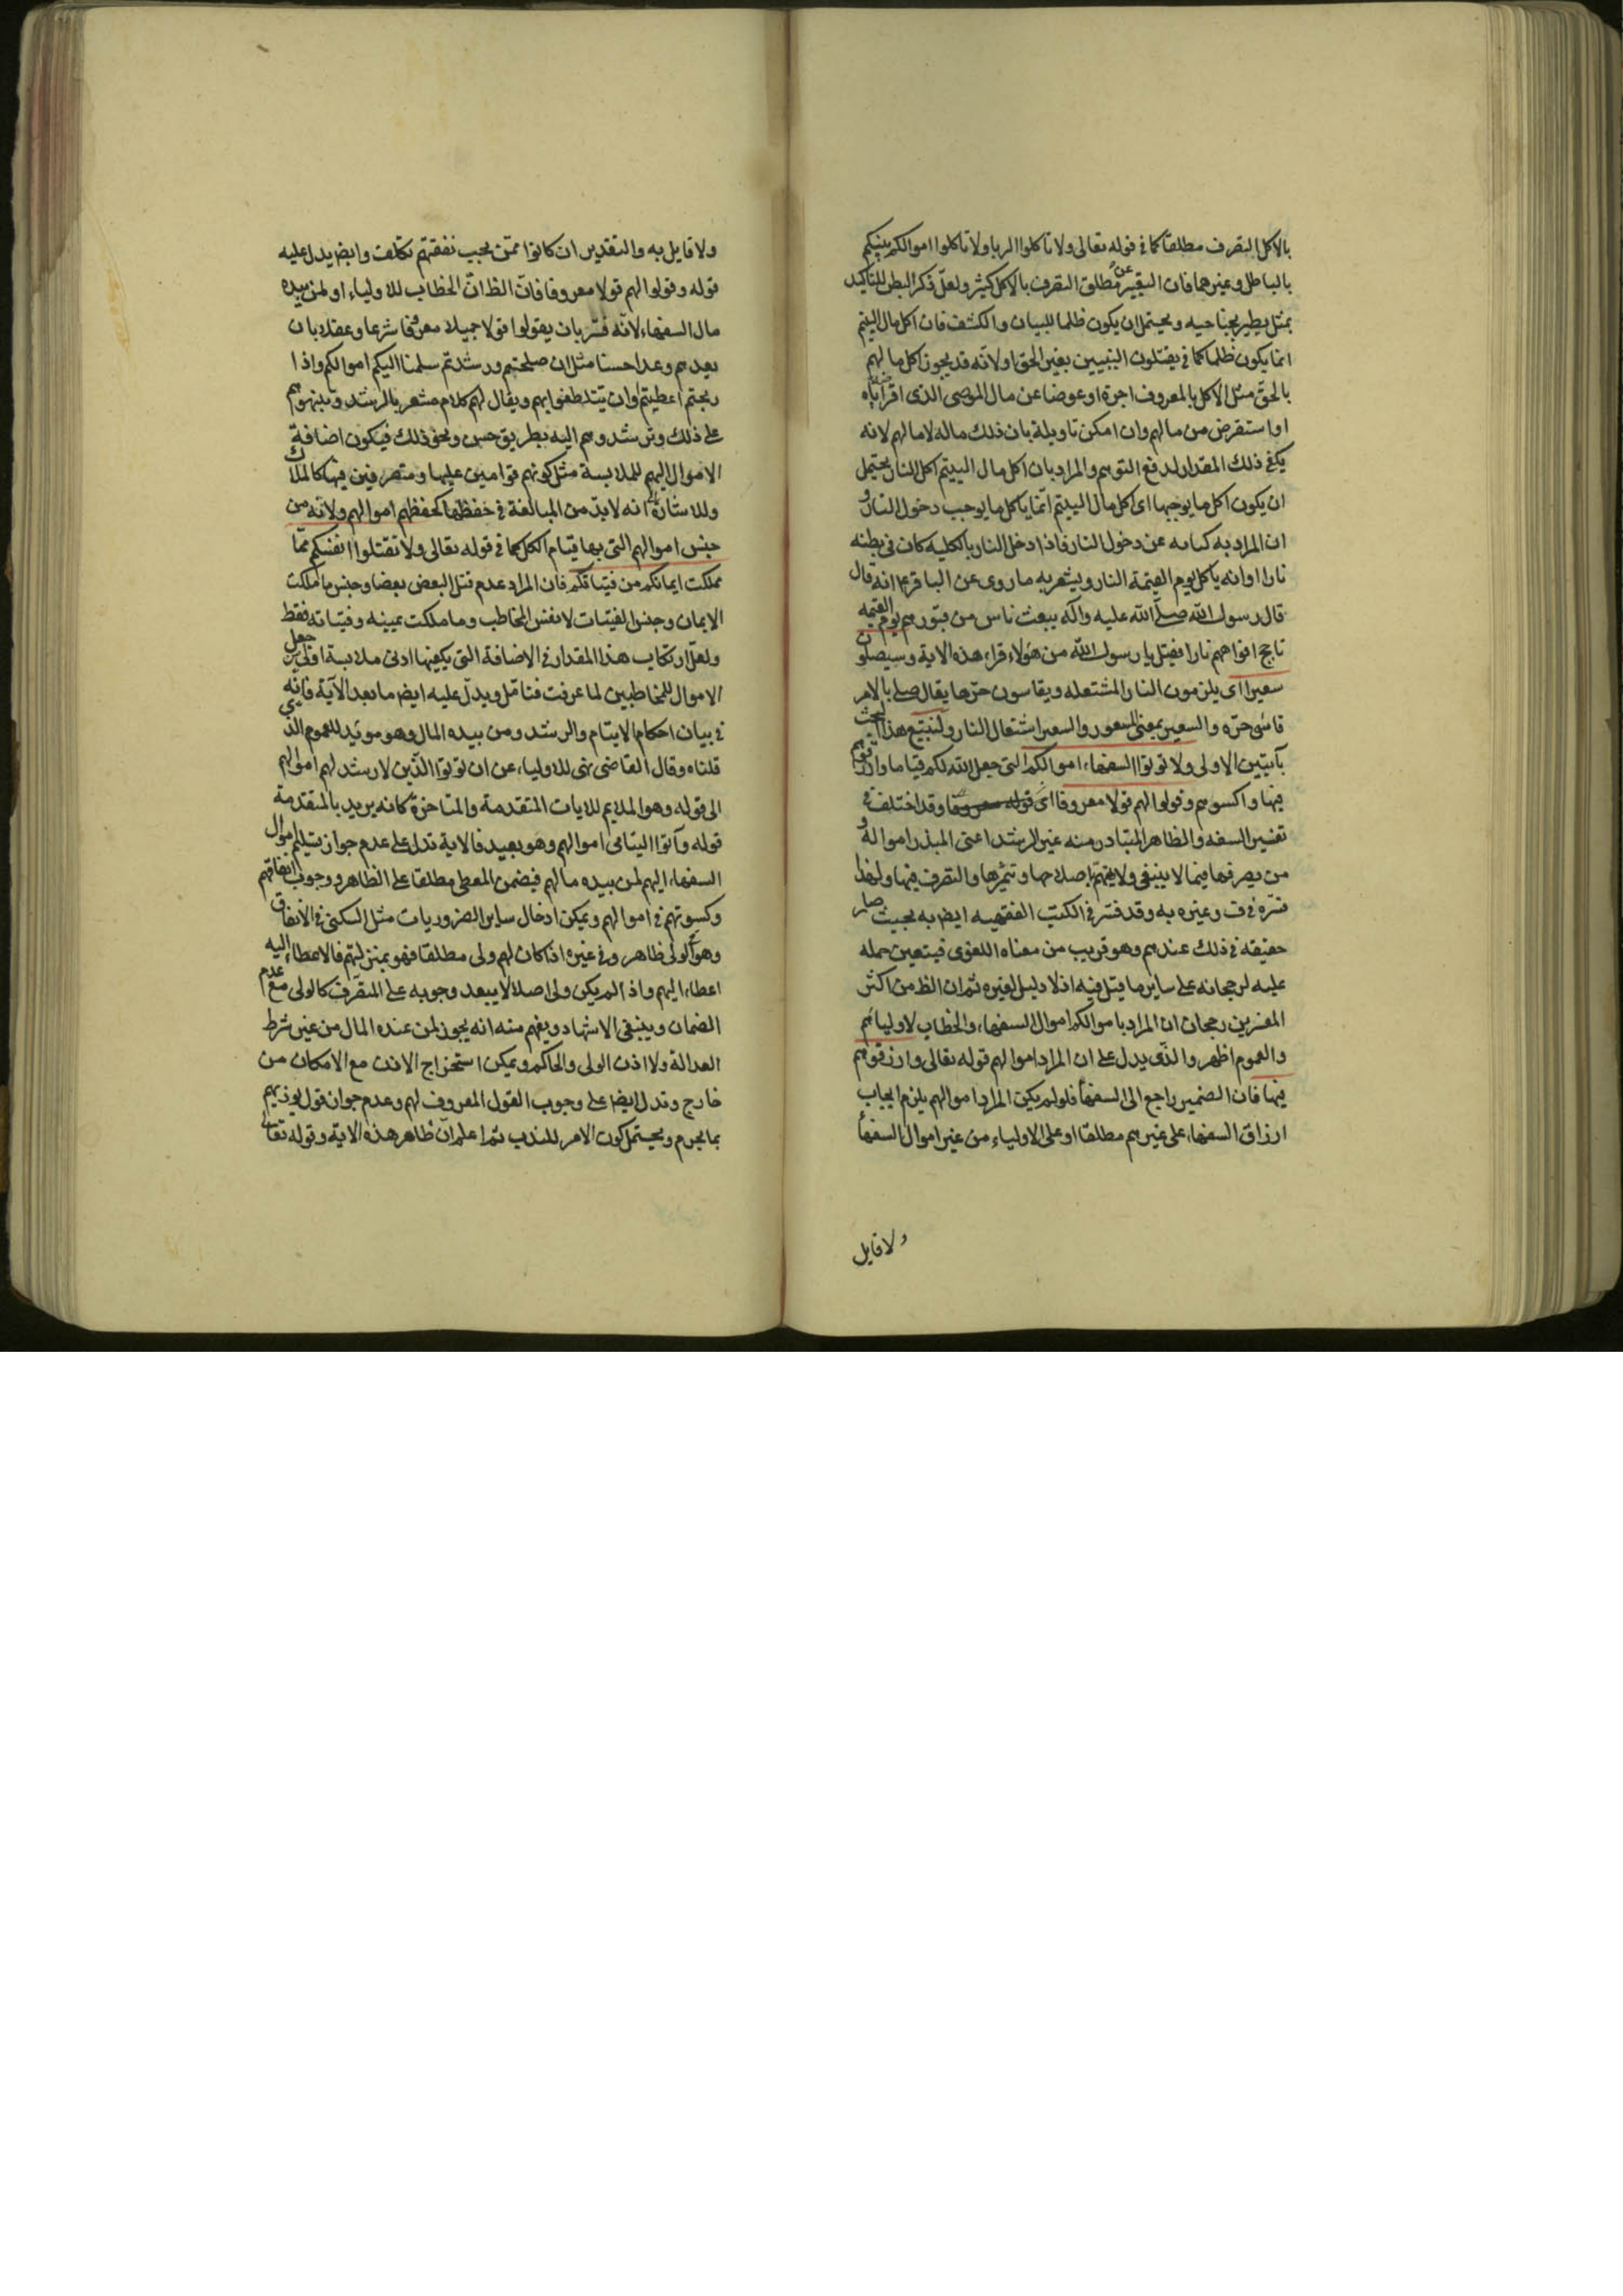 بالاكل التصرف مطلقا كما في قوله تعالى ولا تاكلوا الربا ولا تاكلوا اموالكم بينكم
بالباطل وغيرهما فان التعبير عن مطلق التصرف بالاكل كثير ولعل ذكر البطن للتاكيد
بمثل يطير بجناحيه ويحتمل ان يكون ظلما للبيان والكشف فان اكل مال اليتيم
انما يكون ظلما كما في يقتلون النبيين بغير الحق او لانه قد يجوز اكل مالهم
بالحق مثل الاكل بالمعروف اجرة او عوضا عن مال الموصى الذي اقرضه اياه
او استقرض من مالهم وان امكن تاويله بان ذلك ماله لا مالهم لانه
يكفى ذلك المقدار لدفع التوهم والمراد بان اكل مال اليتيم اكل النار يحتمل
ان يكون اكل ما يوجبها اى اكل مال اليتيم انما ياكل ما يوجب دخول النار و
ان المراد به كنايه عن دخول النار فاذا دخل النار بالكليه كان في بطنه
نارا او انه ياكل يوم القيمة النار ويشعر به ما روى عن الباقر ع انه قال
قال رسول الله صلى الله عليه واله يبعث ناس من قبورهم يوم القيمه
تاجج افواههم نارا فقيل يا رسول الله من هؤلاء قراء هذه الاية وسيصلون
سعيرا اى يلزمون النار المشتعله ويقاسون حرها يقال صلى بالامر
قاسى حره والسعير بمعنى المسعور والسعر اشتعال النار ولنتبع هذا البحث
بآيتين الاولى ولا تؤتوا السفهاء اموالكم التى جعل الله لكم قياما وارزقوهم
فيها واكسوهم وقولوا لهم قولا معروفا وقد اختلف في
تفسير السفه والظاهر المتبادر منه غير الرشد اعنى المبذر امواله و
من يصرفها فيما لا ينبغى ولا يهتم باصلاحها وتثميرها والتصرف فيها ولهذا
فسره في ف وغيره به وقد فسر في الكتب الفقهيه ايضا به بحيث صار
حقيقه في ذلك عندهم وهو قريب من معناه اللغوى فيتعين حمله
عليه لرجحانه على ساير ما قيل فيه اذ لا دليل لغيره ثم ان الظ من اكثر
المفسرين رجحان ان المراد باموالكم اموال السفهاء والخطاب لاوليائهم
والعموم اظهر والذى يدل على ان المراد اموالهم قوله تعالى وارزقوهم
فيها فان الضمير راجع الى السفهاء فلو لم يكن المراد اموالهم يلزم ايجاب
ارزاق السفهاء على غيرهم مطلقا او على الاولياء من غير اموال السفهاء
ولا قايل
ولا قايل به والتقدير ان كانوا ممن يجب نفقتهم تكلف وايضا يدل عليه
قوله وقولوا لهم قولا معروفا فان الظ ان الخطاب للاولياء او لمن بيده
مال السفهاء لانه فسر بان يقولوا قولا جميلا معروفا شرعا وعقلا بان
يعدهم وعدا حسنا مثل ان صلحتم ورشدتم سلمنا اليكم اموالكم واذا
ربحتم اعطيتم وان يتلطفوا بهم ويقال لهم كلام مشعر بالرشد وينبهوهم
على ذلك وترشدوهم اليه بطريق حسن ونحو ذلك فيكون اضافة
الاموال اليهم للملابسة مثل كونهم قوامين عليها ومتصرفين فيها كالملاك
وللاشارة انه لا بد من المبالغة في حفظها كحفظهم اموالهم ولانه من
جنس اموالهم التى بها قيام الكل كما في قوله تعالى ولا تقتلوا انفسكم مما
ملكت ايمانكم من فتياتكم فان المراد عدم قتل البعض بعضا وجنس ما ملكت
الايمان وجنس الفتيات لا نفس المخاطب وما ملكت يمينه وفتياته فقط
ولعل ارتكاب هذا المقدار في الاضافة التى يكفيها ادنى ملابسة اولى من جعل
الاموال للمخاطبين لما عرفت فتامل ويدل عليه ايضا ما بعد الآية فانه
في بيان احكام الايتام والرشد ومن بيده المال وهو مويد للعموم الذى
قلناه وقال القاضى نهى للاولياء عن ان يؤتوا الذين لا رشد لهم اموالهم
الى قوله وهو الملايم للايات المتقدمة والمتاخرة كانه يريد بالمتقدمة
قوله وآتوا اليتامى اموالهم وهو بعيد فالاية تدل على عدم جواز تسليم اموال
السفهاء اليهم لمن بيده مالهم فيضمن المعطى مطلقا على الظاهر ووجوب انفاقهم
وكسوتهم في اموالهم ويمكن ادخال ساير الضروريات مثل السكنى في الانفاق
وهو الولى ظاهر وفي غيره اذا كان لهم ولى مطلقا فهو بمنزلتهم فالاعطاء اليه
اعطاء اليهم واذا لم يكن ولى اصلا لا يبعد وجوبه على المتصرف كالولى مع عدم
الضمان وينبغى الاشهاد ويفهم منه انه يجوز لمن عنده المال من غير شرط
العدالة ولا اذن الولى والحاكم ويمكن استخراج الاذن مع الامكان من
خارج وتدل ايضا على وجوب القول المعروف لهم وعدم جواز قول يوذيهم
بما يحرم ويحتمل كون الامر للندب ثم اعلم ان ظاهر هذه الاية وقوله تعالى